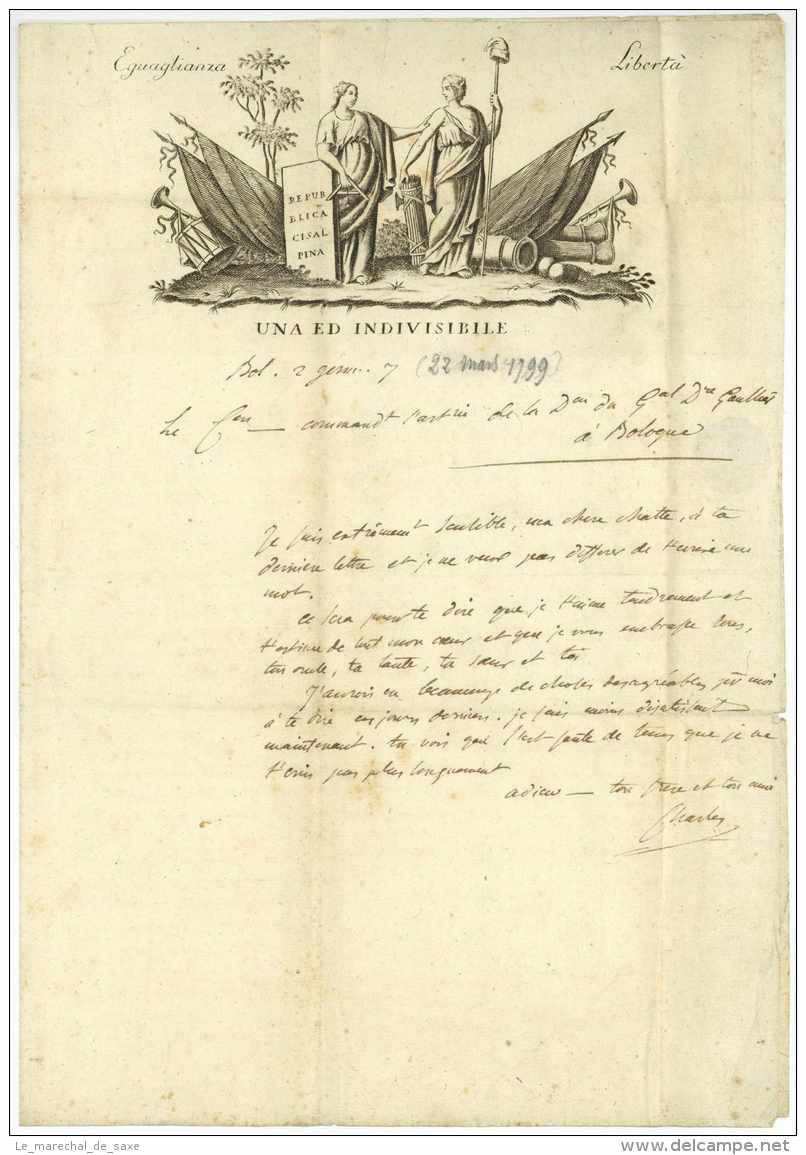 Eguaglianza
Libertà
REPUB
BLICA
CISAL
PINA
UNA ED INDIVISIBILE
Bol. 2 germ. 7 (22 mars 1799)
Le Cen — commandt l'artie de la Don du Gal Dre Gaulthier
à Bologne
Je suis extrêment sensible, ma chere chatte, à ta
derniere lettre et je ne veux pas differer de t'ecrire un
mot.
ce sera pour te dire que je t'aime tendrement et
t'estime de tout mon cœur et que je vous embrasse tous,
ton oncle, ta tante, ta sœur et toi
J'aurois eu beaucoup de choses desagréables pr moi
à te dire ces jours derniers. je suis moins
maintenant. tu vois que c'est faute de tems que je ne
t'ecris pas plus longuement
adieu — ton frere et ton ami
Charles
Le_marechal_de_saxe
delcampe.net